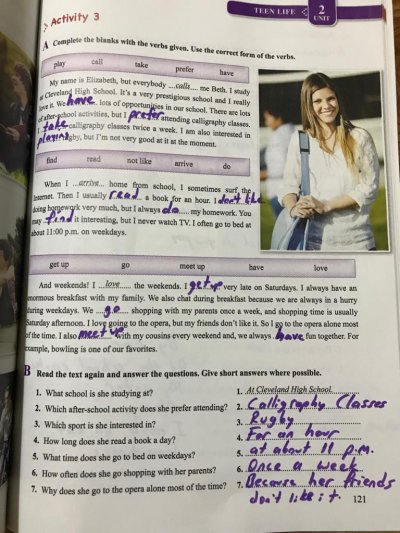 TEEN LIFE 2 UNIT
Activity 3
A Complete the blanks with the verbs given. Use the correct form of the verbs.
play call take prefer have
My name is Elizabeth, but everybody ....calls.... me Beth. I study
at Cleveland High School. It's a very prestigious school and I really
love it. We have lots of opportunities in our school. There are lots
of after-school activities, but I prefer attending calligraphy classes.
I take calligraphy classes twice a week. I am also interested in
playing rugby, but I'm not very good at it at the moment.
find read not like arrive do
When I ...arrive... home from school, I sometimes surf the
Internet. Then I usually read a book for an hour. I don't like
doing homework very much, but I always do my homework. You
may find it interesting, but I never watch TV. I often go to bed at
about 11:00 p.m. on weekdays.
get up go meet up have love
And weekends! I ...love... the weekends. I get up very late on Saturdays. I always have an
enormous breakfast with my family. We also chat during breakfast because we are always in a hurry
during weekdays. We go shopping with my parents once a week, and shopping time is usually
Saturday afternoon. I love going to the opera, but my friends don't like it. So I go to the opera alone most
of the time. I also meet up with my cousins every weekend and, we always have fun together. For
example, bowling is one of our favorites.
B Read the text again and answer the questions. Give short answers where possible.
1. What school is she studying at? 1. At Cleveland High School.
2. Which after-school activity does she prefer attending? 2. Calligraphy Classes
3. Which sport is she interested in? 3. Rugby
4. How long does she read a book a day? 4. For an hour
5. What time does she go to bed on weekdays? 5. at about 11 p.m.
6. How often does she go shopping with her parents? 6. Once a week
7. Why does she go to the opera alone most of the time? 7. Because her friends
don't like it.
121